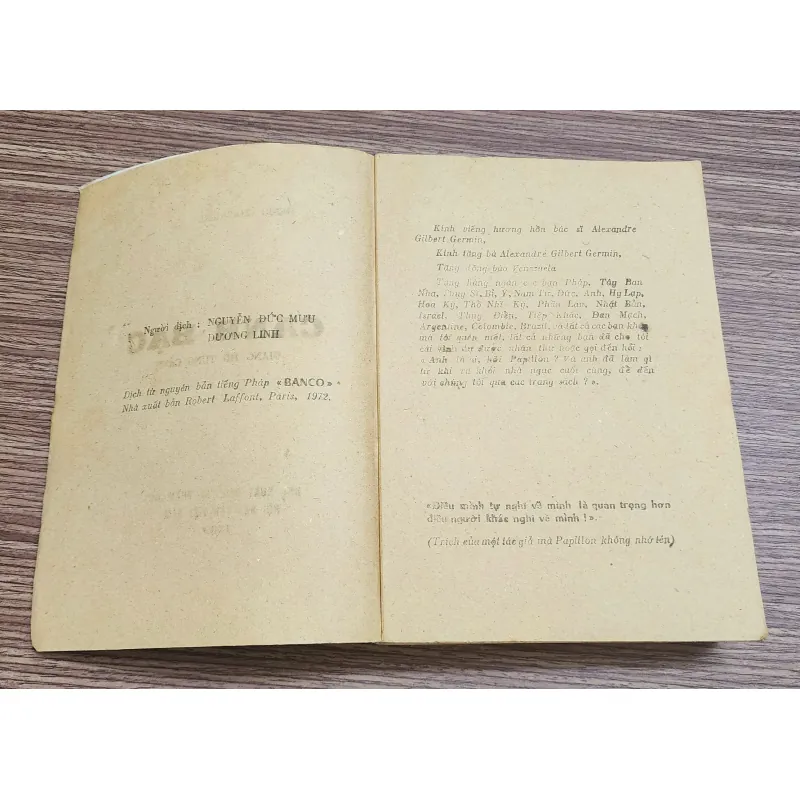 Người dịch : NGUYỄN ĐỨC MƯU
DƯƠNG LINH
Dịch từ nguyên bản tiếng Pháp «BANCO» -
Nhà xuất bản Robert Laffont, Paris, 1972.
Kính viếng hương hồn bác sĩ Alexandre
Gilbert Germin,
Kính tặng bà Alexandre Gilbert Germin,
Tặng đồng bào Venezuela
Tặng hàng ngàn các bạn Pháp, Tây Ban
Nha, Thụy Sĩ, Bỉ, Ý, Nam Tư, Đức, Anh, Hy Lạp,
Hoa Kỳ, Thổ Nhĩ Kỳ, Phần Lan, Nhật Bản,
Israel, Thụy Điển, Tiệp Khắc, Đan Mạch,
Argentine, Colombie, Brazil, và tất cả các bạn khác
mà tôi quên mất, tất cả những bạn đã cho tôi
cái vinh dự được nhận thư hoặc gọi đến hỏi :
« Anh là ai, hỡi Papillon ? Và anh đã làm gì
từ khi ra khỏi nhà ngục cuối cùng, để đến
với chúng tôi qua các trang sách ? ».
«Điều mình tự nghĩ về mình là quan trọng hơn
điều người khác nghĩ về mình ! ».
(Trích của một tác giả mà Papillon không nhớ tên)